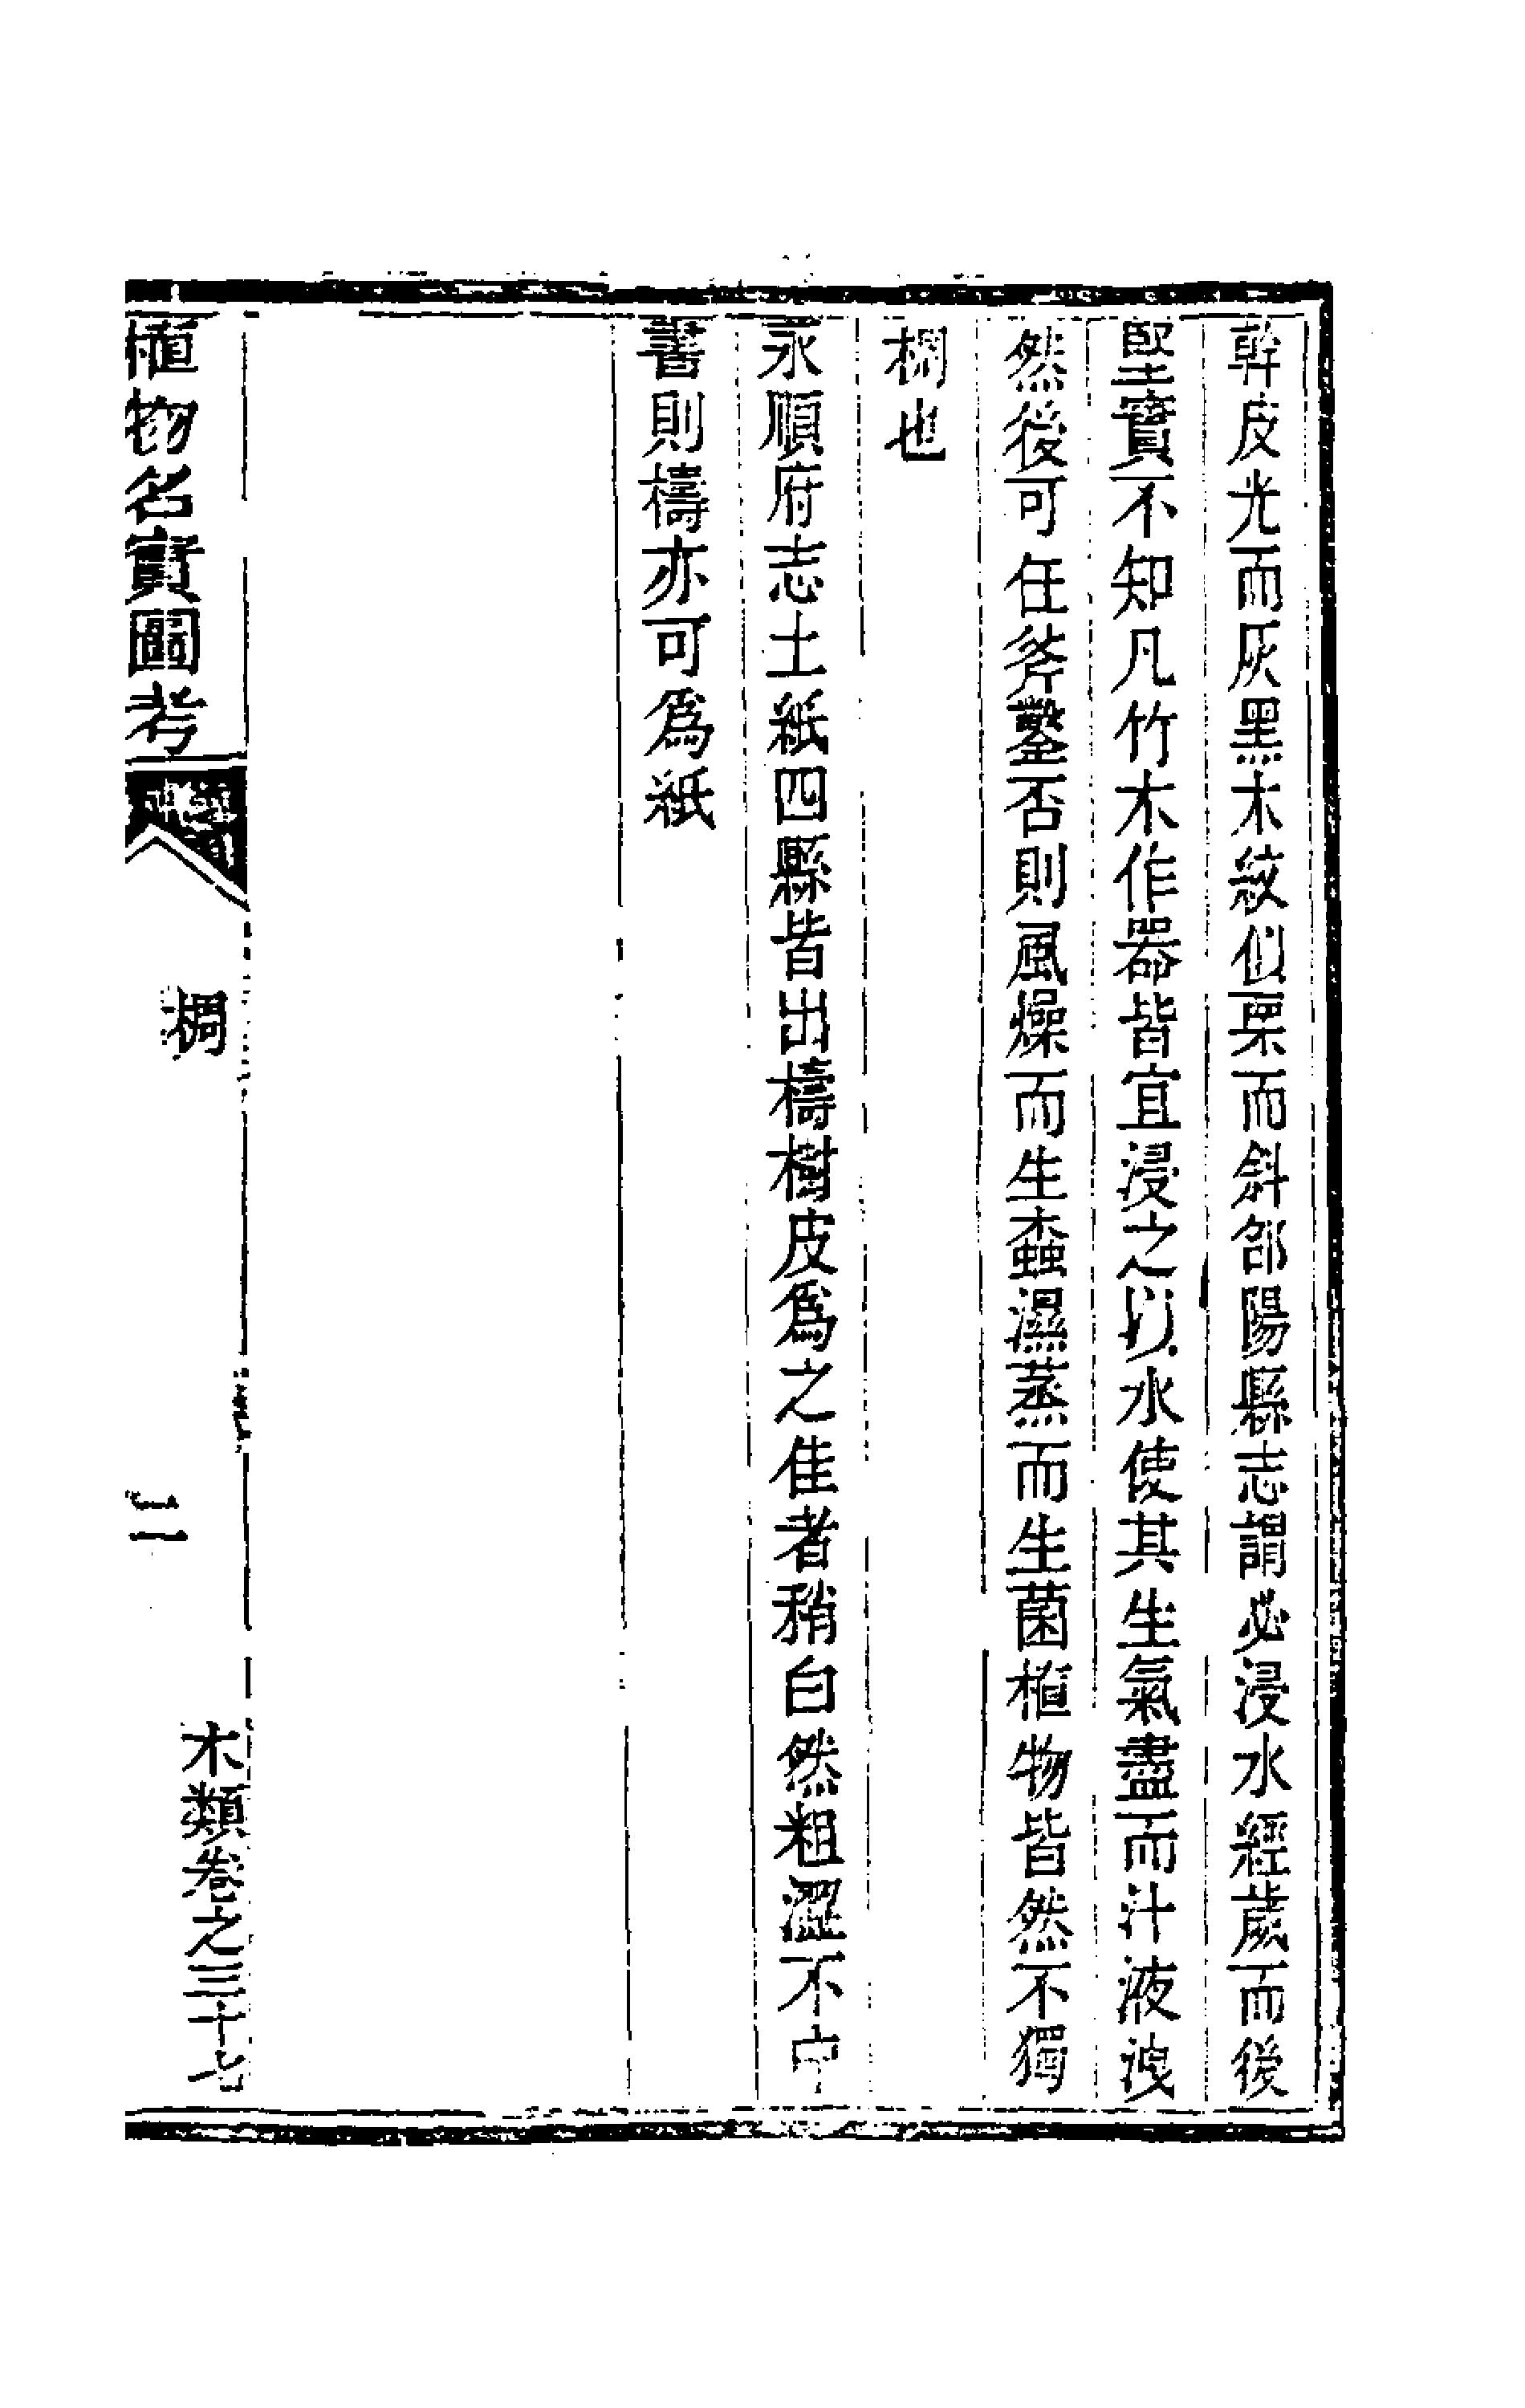 幹皮光而灰黑木紋似栗而斜郃陽縣志謂必浸水經歲而後
堅實不知凡竹木作器皆宜浸之以水使其生氣盡而汁液洩
然後可任斧鑿否則風燥而生蠹濕蒸而生菌植物皆然不獨
椆也
永順府志土紙四縣皆出檮樹皮爲之佳者稍白然粗澀不中
書則檮亦可爲紙
植物名實圖考
椆
二
木類卷之三十七